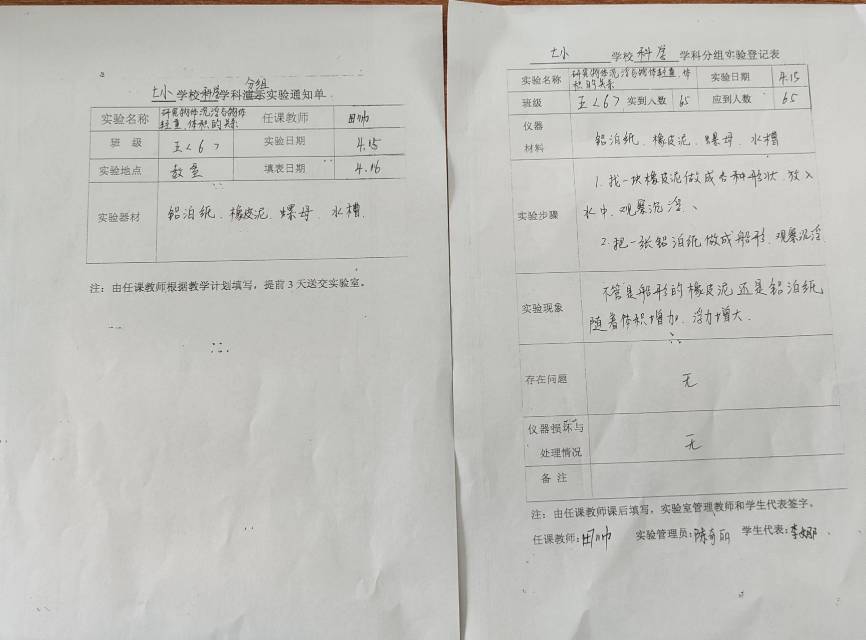 分组
七小学校科学学科演示实验通知单
实验名称 研究物体沉浮与物体轻重、体积的关系 任课教师 田帅
班 级 五<6> 实验日期 4.15
实验地点 教室 填表日期 4.16
实验器材 铝泊纸、橡皮泥、螺母、水槽
注：由任课教师根据教学计划填写，提前3天送交实验室。
七小 学校 科学 学科分组实验登记表
实验名称 研究物体沉浮与物体轻重、体积的关系 实验日期 4.15
班级 五<6> 实到人数 65 应到人数 65
仪器
材料 铝泊纸、橡皮泥、螺母、水槽
实验步骤
1.找一块橡皮泥做成各种形状,放入
水中,观察沉浮、
2.把一张铝泊纸做成船形,观察沉浮
实验现象
不管是船形的橡皮泥还是铝泊纸,
随着体积增加,浮力增大.
存在问题 无
仪器损坏与
处理情况 无
备 注
注：由任课教师课后填写，实验室管理教师和学生代表签字。
任课教师:田帅 实验管理员:陈奇丽 学生代表:李娜